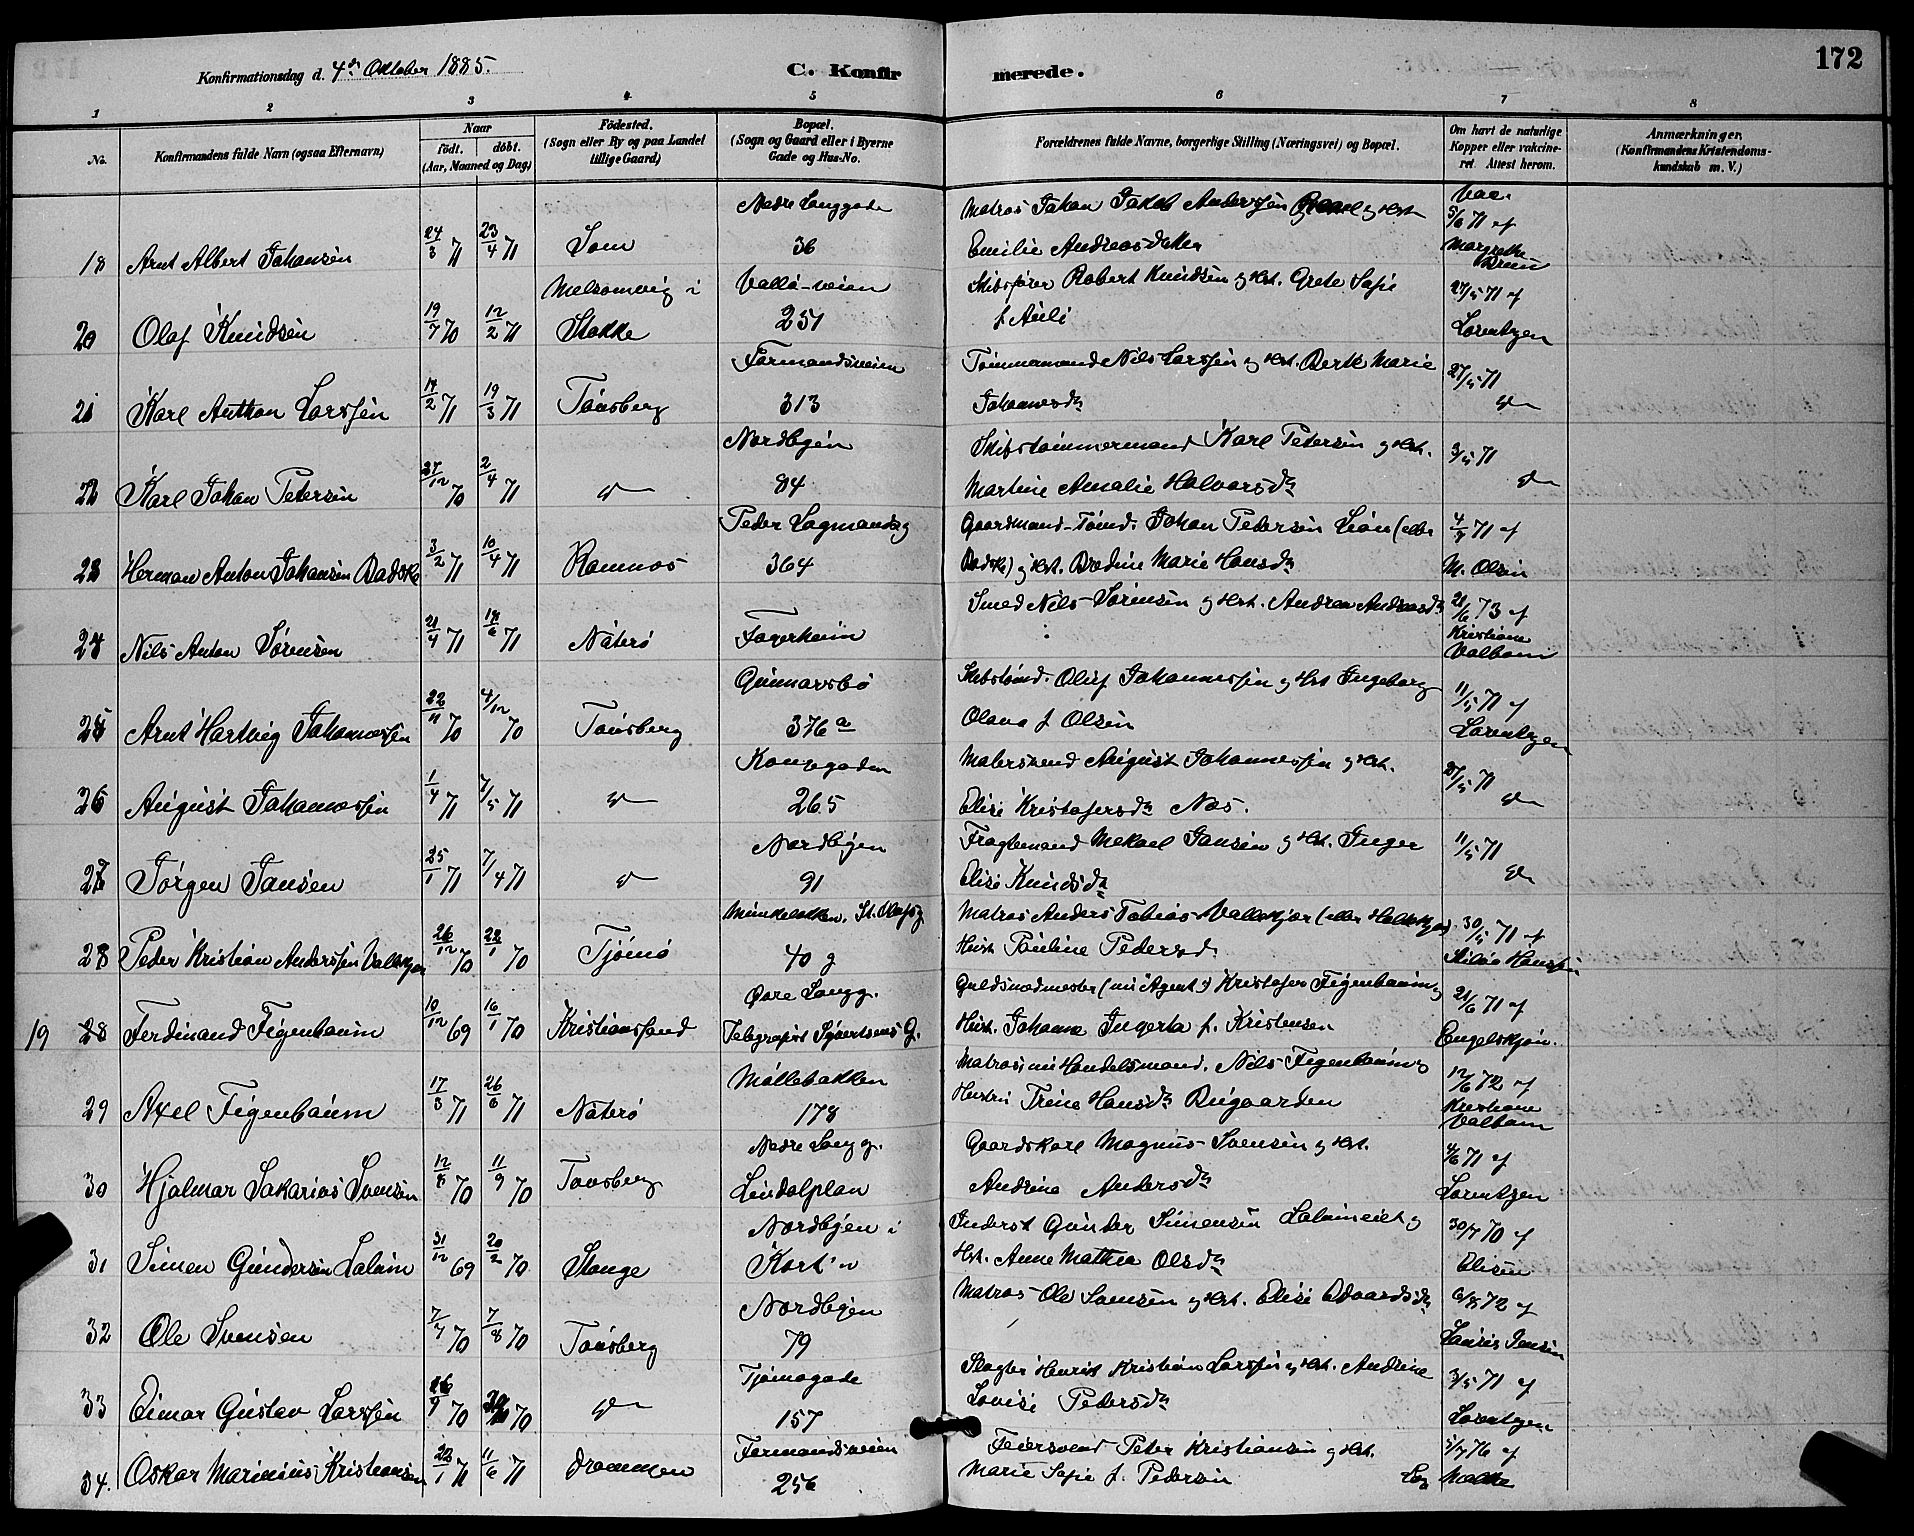 172
Konfirmationsdag d. 4de Oktober 1885.
C. Konfirmerede.
1 2 3 4 5 6 7 8
No.
Konfirmandens fulde Navn (ogsaa Efternavn)
Naar
födt. döbt.
(Aar, Maaned og Dag)
Födested.
(Sogn eller By og paa Landet tillige Gaard)
Bopæl.
(Sogn og Gaard eller i Byerne Gade og Hus-No.
Forældrenes fulde Navne, borgerlige Stilling (Næringsvei) og Bopæl.
Om havt de naturlige Kopper eller vakcineret. Attest herom.
Anmærkninger.
(Konfirmandens Kristendomskundskab m. V.)
18 Arnt Albert Johansen 24/3 71 23/4 71 Sem Nedre Langgade 36 Matros Johan Jakob Anderssen og Hst. Emilie Andreasdatter Vac. 5/6 71 af Margrethe Bruun
20 Olaf Knudsen 19/7 70 12/2 71 Melsomvig i Stokke Vallö-veien 251 Skibsfører Robert Knudsen og Hst. Grete Sofie f Auli 27/5 71 af Lorentzen
21 Karl Anthon Larssen 14/2 71 19/3 71 Tönsberg Formandsveien 313 Tömmermand Nils Larssen og Hst. Berte Marie Johannesdr 27/5 71 do
22 Karl Johan Petersen 27/12 70 2/4 71 do Nordbyen 84 Skibstömmermand Karl Petersen og Hst. Martine Amalie Halvorsdr 3/5 71 do
23 Herman Anton Johansen Badske 3/2 71 10/4 71 Ramnæs Peder Lagmandsg 364 Gaardmand-Tömd. Johan Pedersen Lian (eller Badske) og Hst. Bredine Marie Hansdr 4/7 71 af M. Olsen
24 Nils Anton Sørensen 21/4 71 18/6 71 Nöterö Fagerheim Smed Nils Sørensen og Hst. Andrea Andreasdr 21/6 73 af Kristiane Valbom
25 Arnt Hartvig Johannessen 22/11 70 4/12 70 Tönsberg Gunnarsbö 376a Skibstömd. Oluf Johannessen og Hst Ingeborg Olava f Olsen 11/5 71 af Lorentzen
26 August Johannessen 1/4 71 7/5 71 do Kongegaden 265 Malersvend August Johannessen og Hst. Elise Kristofersdr Næs. 27/5 71 do
27 Jørgen Jansen 25/1 71 7/4 71 do Nordbyen 91 Fragtemand Mekael Jansen og Hst. Inger Elise Knudsdr 11/5 71 do
28 Peder Kristian Anderssen Valskjær 26/12 70 22/1 70 Tjömö Munkebakken, St. Olafsg 40 g Matros Anders Tobias Valskjær (eller Holtskjær) Hust. Pauline Pedersd. 30/5 71 af Hanssen
19 28 Ferdinand Figenbaum 10/12 69 16/1 70 Kristianssand Øvre Langg. Telegrafist Syvertsens G. Guldsmedmester (nu Agent) Kristofer Figenbaum og Hust. Johanne Ingerta f. Kristensen 21/6 71 af Engelskjøn.
29 Axel Figenbaum 17/3 71 26/6 71 Nöterö Möllebakken 178 Matros, nu Handelsmand. Nils Figenbaum og Hustru Trine Hansdr Bugaarden 12/6 72 af Kristiane Valbom
30 Hjalmar Sakarias Svensen 12/8 70 11/9 70 Tönsberg Nedre Langg. Lindalplan Gaardskarl Magnus Svensen og Hst. Andrine Andersdr 4/6 71 af Lorentzen
31 Simen Gundersen Lalum 31/12 69 20/2 70 Stange Nordbyen i Inderst Gunder Simensen Lalumeiet og Hst. Anne Mathea Olsdr 30/7 70 af Elisen
32 Ole Svensen 7/7 70 7/8 70 Tönsberg Nordbyen 79 Matros Ole Svensen og Hst. Elise Edvardsdr 6/8 72 af Jensen
33 Eimar Gustav Larssen 26/9 70 70 do Tjömegade 157 Slagter Henrik Kristian Larssen og Hst. Andrine Lovise Petersdr 3/5 71 af Lorentzen
34. Oskar Marinius Kristiansen 22/1 71 11/6 71 Drammen Formandsveien 256 Feiersvend Peter Kristiansen og Hst. Marie Sofie f. Pedersen 5/7 76 af